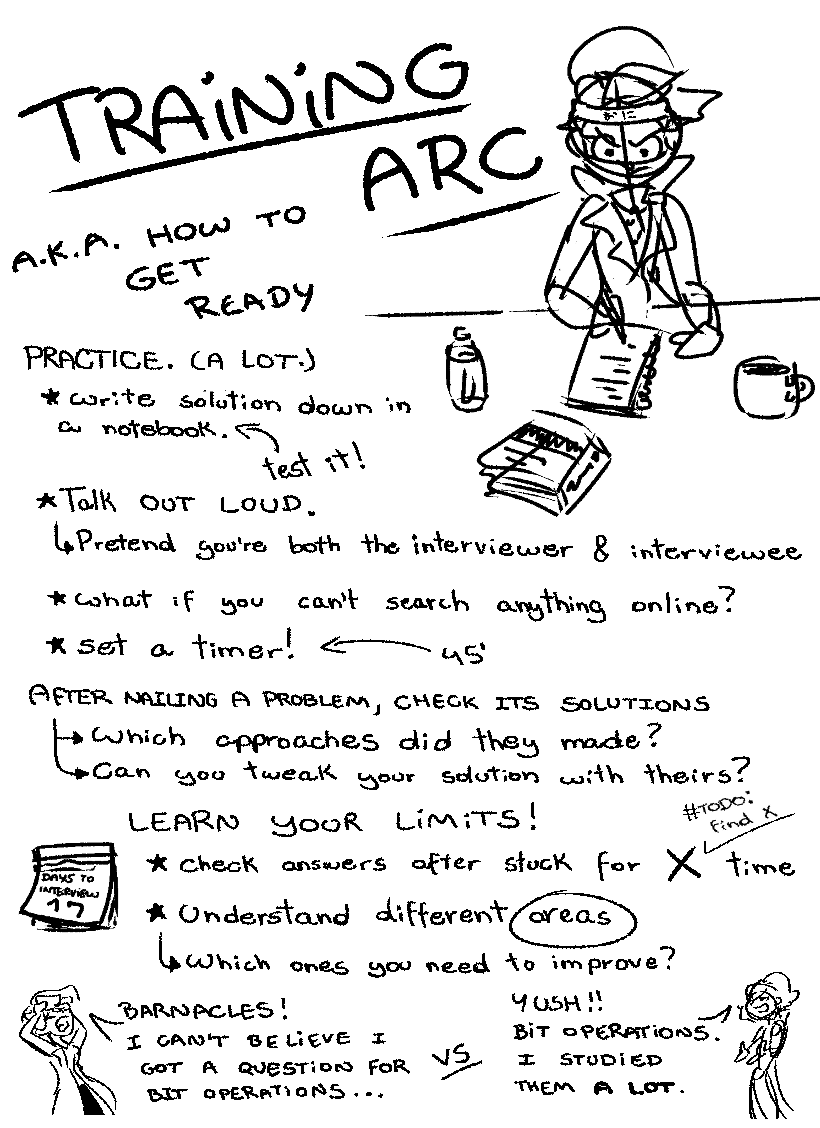 TRAiNiNG
ARC
A.K.A. HOW TO
GET
READY
おに
PRACTICE. (A LOT.)
★ write solution down in
a notebook.
test it!
★ Talk OUT LOUD.
Pretend you're both the interviewer & interviewee
★ what if you can't search anything online?
★ set a timer!
45'
AFTER NAILING A PROBLEM, CHECK ITS SOLUTIONS
Which approaches did they made?
Can you tweak your solution with theirs?
LEARN YOUR LiMiTS!
#TODO:
Find X
★ check answers after stuck for X time
DAYS TO
INTERVIEW
17
★ Understand different areas
Which ones you need to improve?
BARNACLES!
I CAN'T BELiEVE I
GOT A QUESTION FOR
BIT OPERATIONS...
VS
YUSH!!
BIT OPERATiONS.
I STUDIED
THEM A LOT.